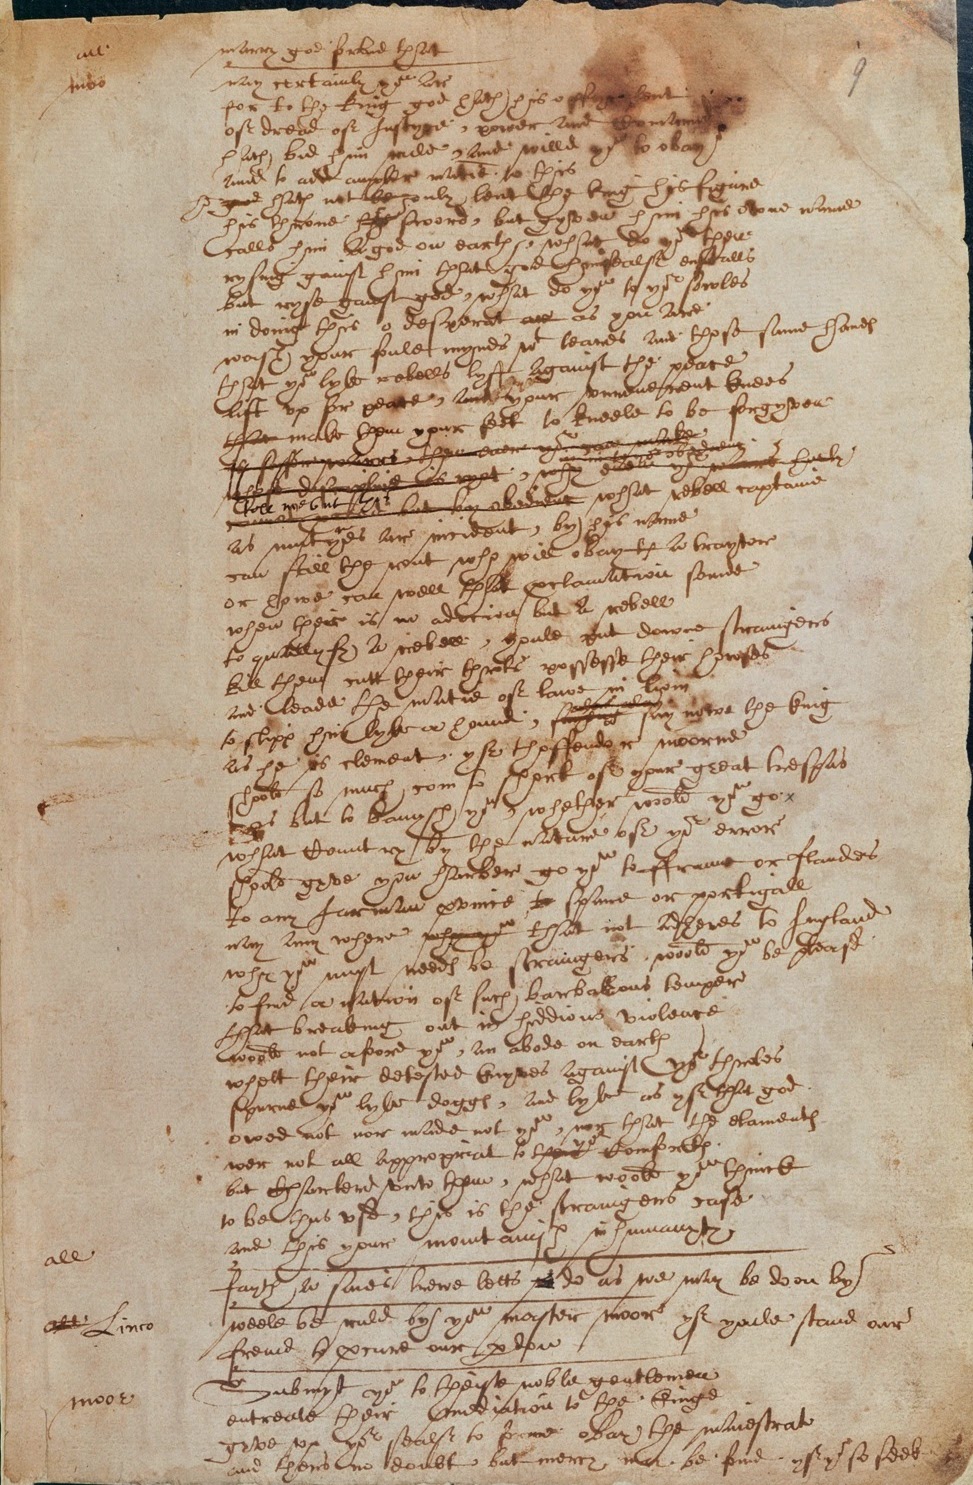 9
all marry god forbid that
moo nay certainly you ar
for to the king god hath his offyce lent
of dread of Iustyce, power and Comaund
hath bid him rule, and willd you to obay
and to add ampler matie. to this
he god hath not le only lent the king his figure
his throne hys sword, but gyven him his owne name
calls him a god on earth, what do you then
rysing gainst him that god himsealf enstalls
but ryse gainst god, what do you to yor sowles
in doing this o desperat ar as you are
wash your foule mynds wt teares and those same handes
that you lyke rebells lyft against the peace
lift vp for peace, and your vnreuerent knees
that make them your feet to kneele to be forgyven
is safer warrs, then euer you can make
whose discipline is ryot, why euen yor warrs hurly
in in to yor obedienc
cannot proceed but by obedienc what rebell captaine
tell me but this
as mutynes ar incident, by his name
can still the rout who will obay th a traytor
or howe can well that proclamation sounde
when ther is no adicion but a rebell
to quallyfy a rebell, youle put downe straingers
kill them cutt their throts possesse their howses
and leade the matie of lawe in liom
to slipp him lyke a hound; saying say nowe the king
as he is clement, yf thoffendor moorne
shoold so much com to short of your great trespas
as but to banysh you, whether woold you go.
what Country by the nature of yor error
shoold gyve you harber go you to ffraunc or flanders
to any Iarman province, to spane or portigall
nay any where why you that not adheres to Ingland
why you must needes be straingers. woold you be pleasd
to find a nation of such barbarous temper
that breaking out in hiddious violence
woold not afoord you, an abode on earth
whett their detested knyves against yor throtes
spurne you lyke doggs, and lyke as yf that god
owed not nor made not you, nor that the elaments
wer not all appropriat to their yor Comforts.
but Charterd vnto them, what woold you thinck
to be thus vsd, this is the straingers case
and this your mountanish inhumanyty
all fayth a saies trewe letts vs do as we may be doon by
all Linco weele be ruld by you master moor yf youle stand our
freind to procure our pdon
moor Submyt you to theise noble gentlemen
entreate their mediation to the kinge
gyve vp yor sealf to forme obay the maiestrate
and thers no doubt, but mercy may be found. yf you so seek